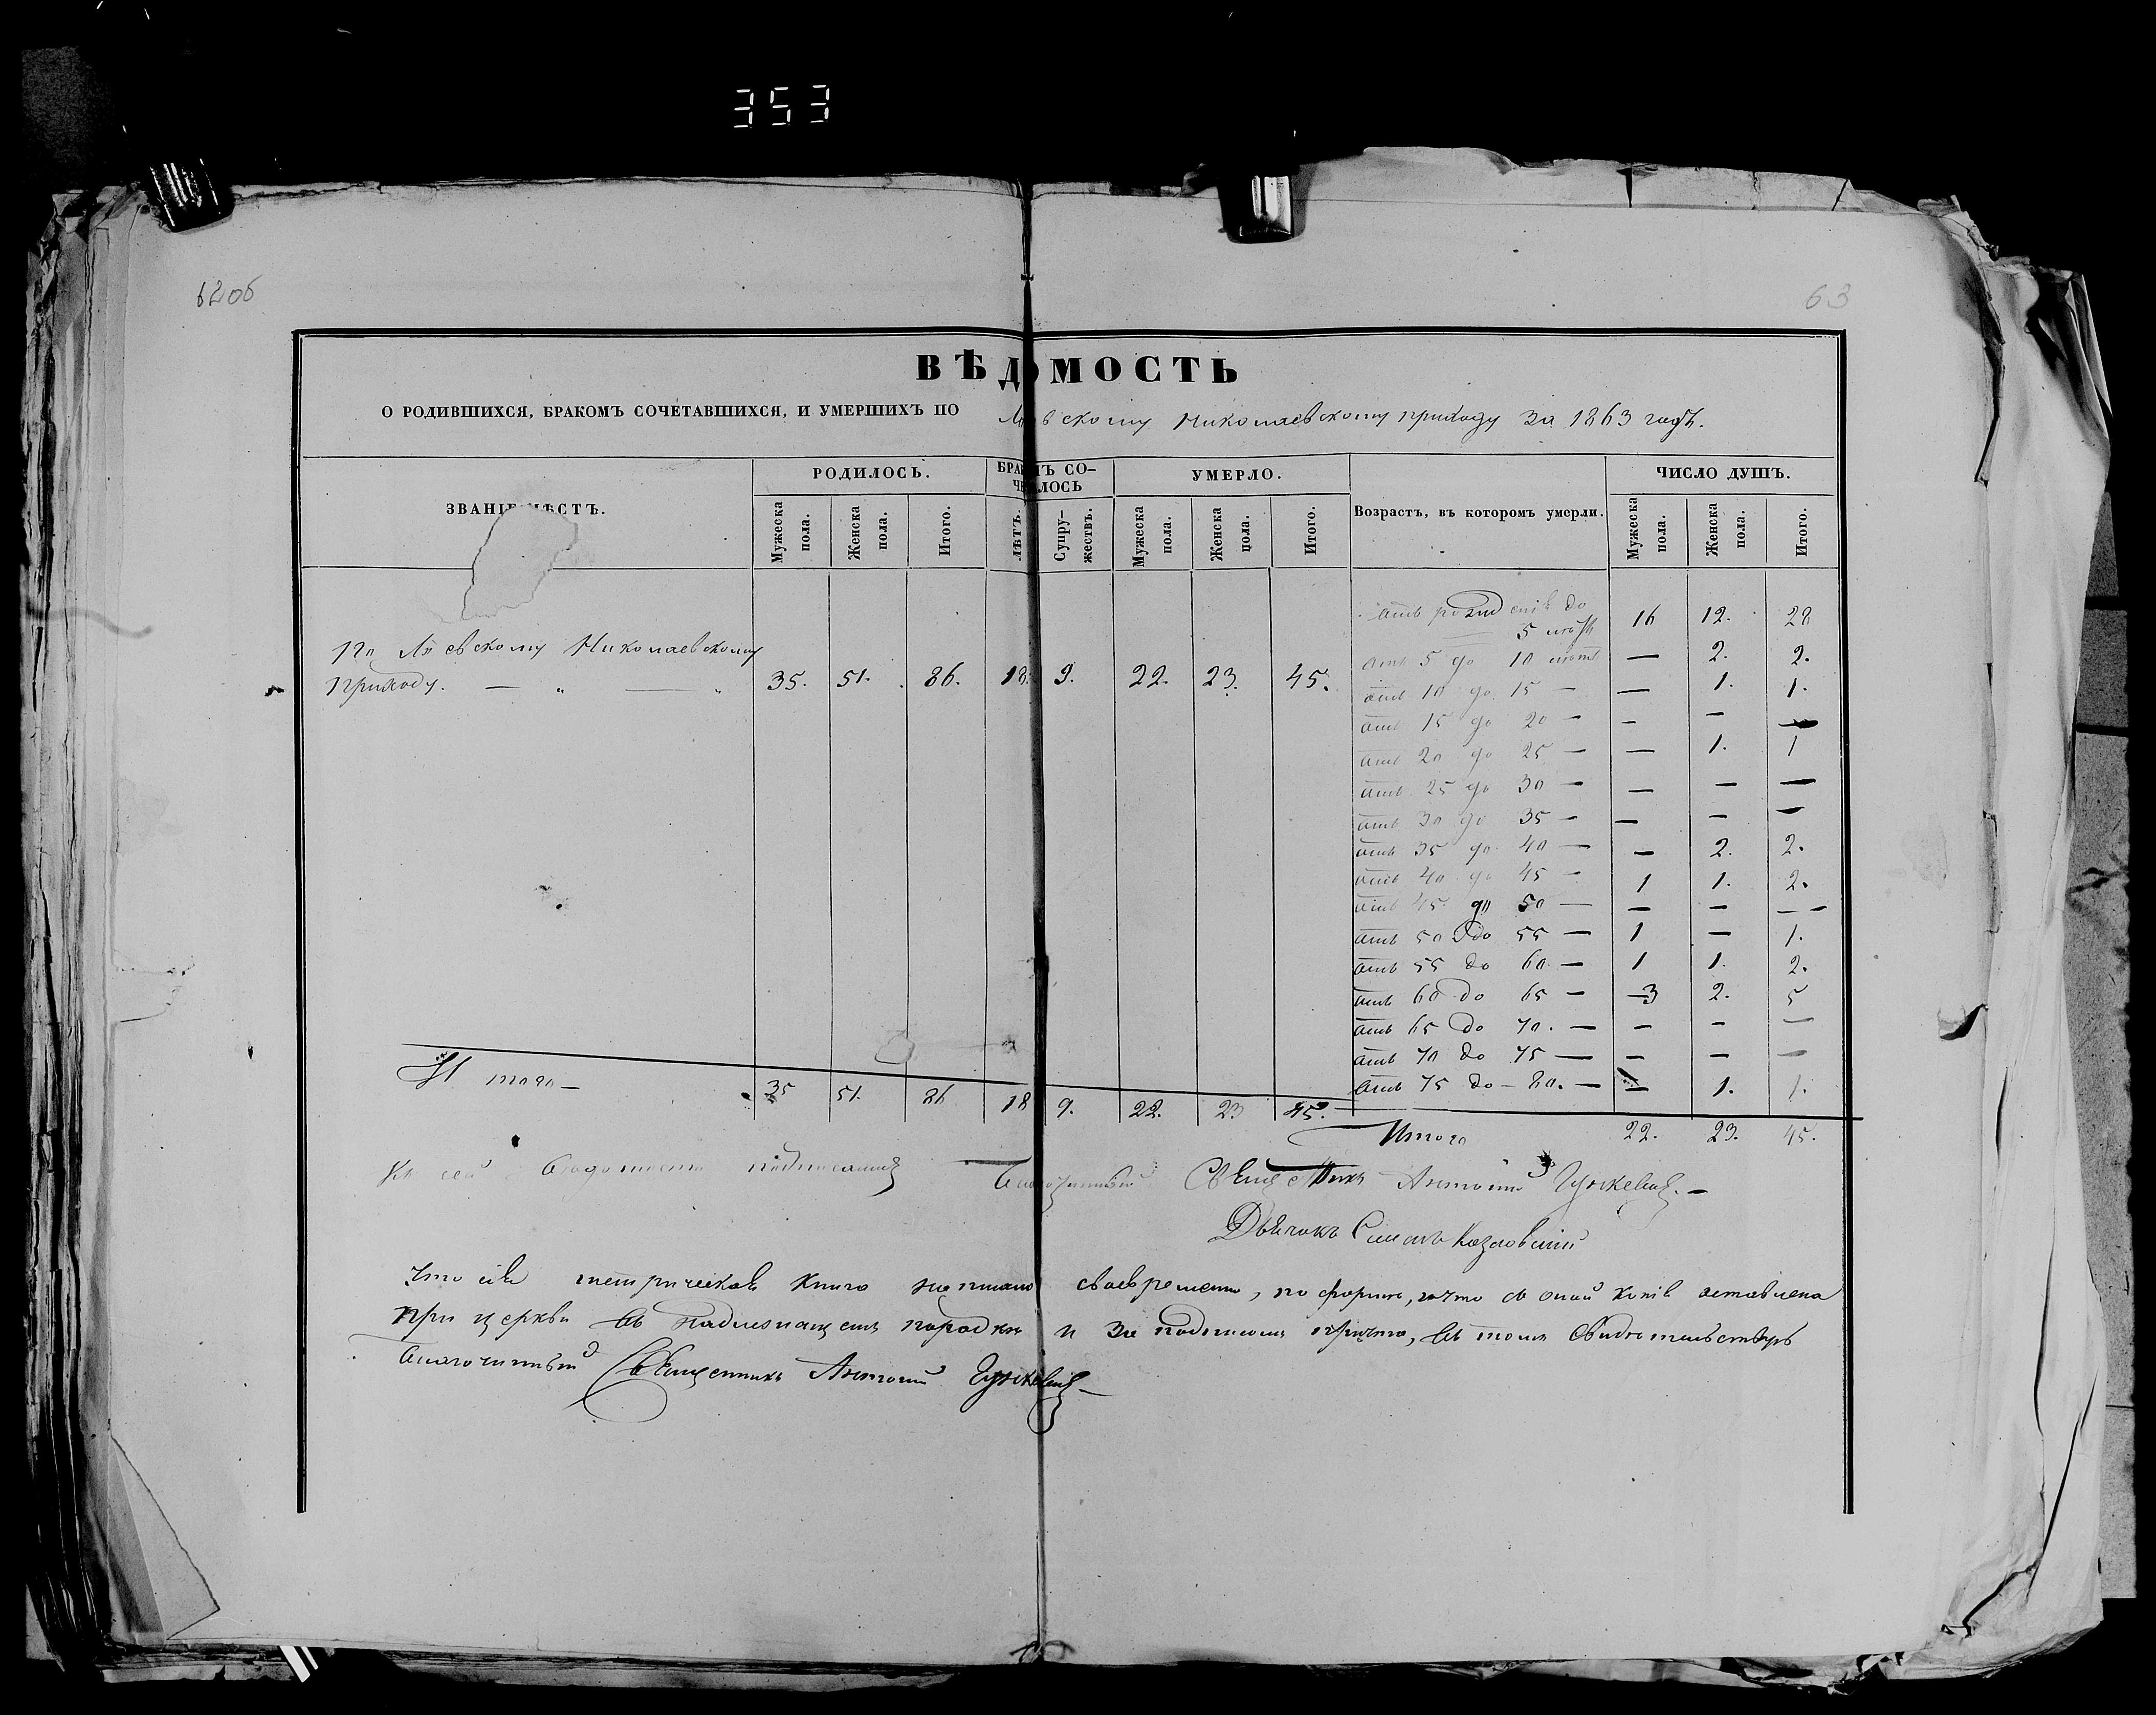 353
62об
63
ВѢДОМОСТЬ
О РОДИВШИХСЯ, БРАКОМЪ СОЧЕТАВШИХСЯ, И УМЕРШИХЪ ПО Николаевскому приходу за 1863 годъ.
ЗВАНІЕ МѢСТЪ.
РОДИЛОСЬ.
БРАКОМЪ СО-
ЧЕТАЛОСЬ
УМЕРЛО.
Возрастъ, въ которомъ умерли.
ЧИСЛО ДУШЪ.
Мужеска пола.
Женска пола.
Итого.
ЛѢТЪ.
Супру-
жествъ.
Мужеска пола.
Женска пола.
Итого.
Мужеска пола.
Женска пола.
Итого.
По Николаевскому
приходу. — „ — „ 35. 51. 86. 18. 9. 22. 23. 45.
отъ рожденія до
5 лѣтъ 16 12. 28
отъ 5 до 10 лѣтъ — 2. 2.
отъ 10 до 15 — — 1. 1.
отъ 15 до 20 — — — —
отъ 20 до 25 — — 1. 1
отъ 25 до 30 — — — —
отъ 30 до 35 — — — —
отъ 35 до 40 — — 2. 2.
отъ 40 до 45 — 1 1. 2.
отъ 45 до 50 — — — —
отъ 50 до 55 — 1 — 1.
отъ 55 до 60 — 1 1. 2.
отъ 60 до 65 — 3 2. 5
отъ 65 до 70. — — — —
отъ 70 до 75 — — — —
отъ 75 до — 80. — — 1. 1.
Итого — 35 51. 86 18 9. 22. 23 45.
Итого 22. 23. 45.
Къ сей вѣдомости Благочинный Священникъ Антоній —
Дьячокъ Козловскій
Что сія метрическая книга писана своевременно, по формѣ, и что съ оной копія оставлена
при церкви въ надлежащемъ порядкѣ и за подписомъ причта, въ томъ свидѣтельствуетъ
Благочинный Священникъ Антоній